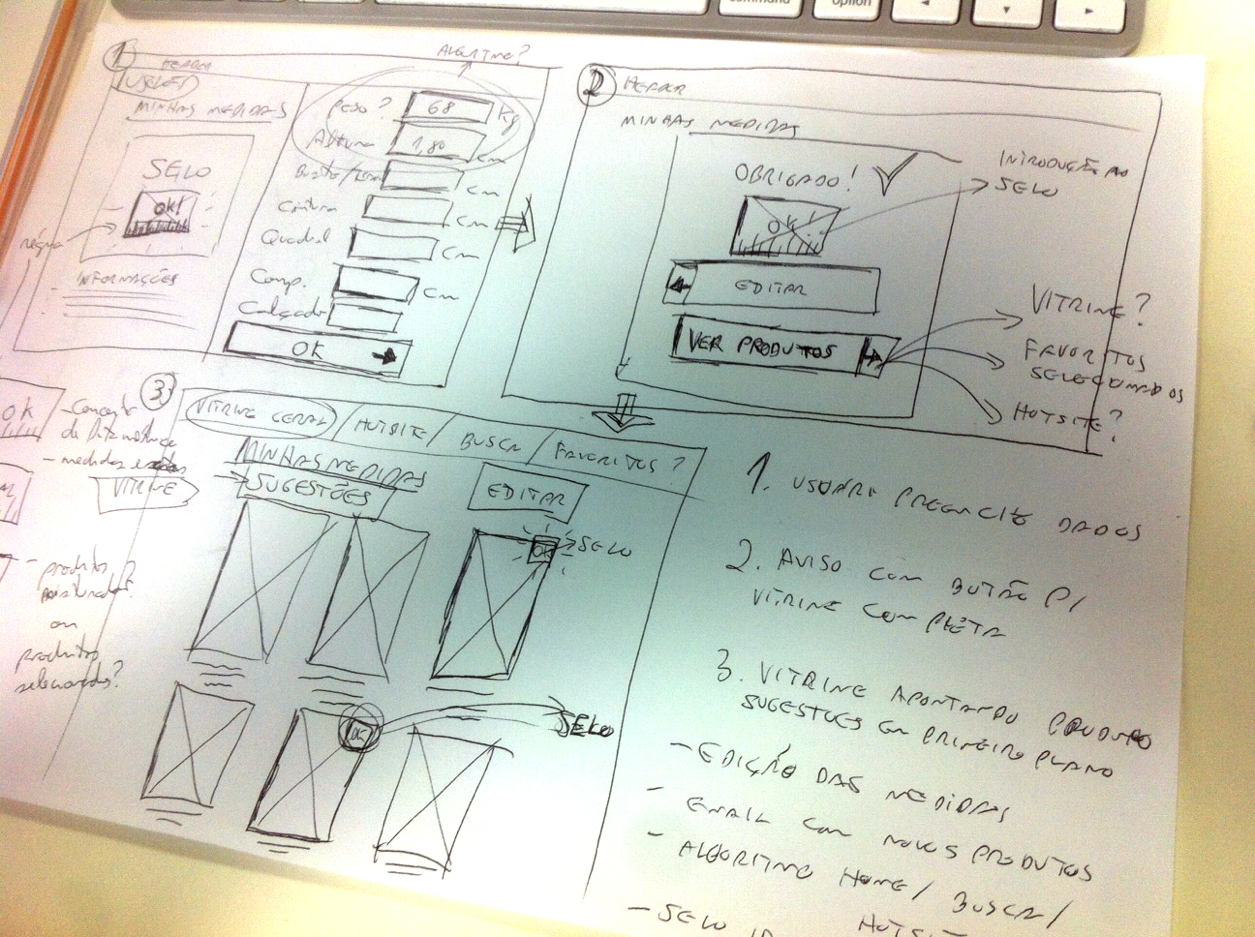 command
option
1
HEADER
ALGORITMO?
MINHAS MEDIDAS
SELO
OK!
régua
INFORMAÇÕES
PESO? 68 Kg
Altura 1,80 cm
cm
Cintura cm
Quadril cm
Comp. cm
Calçado
OK
2
HEADER
MINHAS MEDIDAS
OBRIGADO!
OK!
INTRODUÇÃO AO
SELO
EDITAR
VER PRODUTOS
VITRINE?
FAVORITOS
SELECIONADOS
HOTSITE?
3
VITRINE GERAL / HOTSITE / BUSCA / FAVORITOS?
MINHAS MEDIDAS
SUGESTÕES
EDITAR
VITRINE
OK
SELO
OK
SELO
ok
- Conceito
- medidas
- produtos
ou
produtos
selecionados?
1. USUÁRIO PREENCHE DADOS
2. AVISO COM BOTÃO P/
VITRINE COMPLETA
3. VITRINE APONTANDO PRODUTO
SUGESTÕES EM PRIMEIRO PLANO
- EDIÇÃO DAS MEDIDAS
- EMAIL COM NOVOS PRODUTOS
- ALGORITMO HOME / BUSCA /
HOTSITE
- SELO